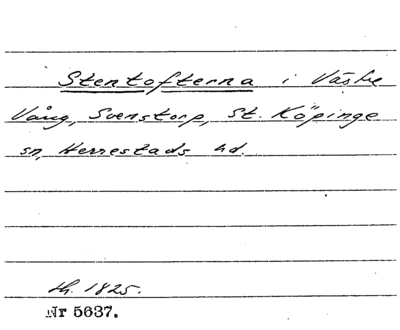 Stentofterna i Västre
Vång, Svenstorp, St. Köpinge
sn, Herrestads hd.
th. 1825.
Nr 5637.